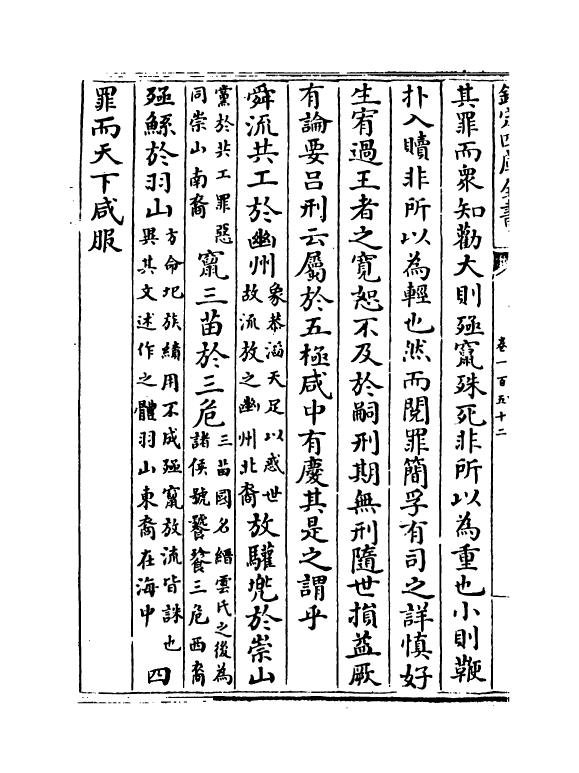 欽定四庫全書
卷一百五十二
其罪而衆知勸大則殛竄殊死非所以為重也小則鞭
扑入贖非所以為輕也然而閱罪簡孚有司之詳慎好
生宥過王者之寛恕不及於嗣刑期無刑隨世損益厥
有論要呂刑云屬於五極咸中有慶其是之謂乎
舜流共工於幽州象恭滔天足以惑世故流放之幽州北裔放驩兜於崇山
黨於共工罪惡同崇山南裔竄三苗於三危三苗國名縉雲氏之後為諸侯號饕餮三危西裔
殛鯀於羽山方命圮族績用不成殛竄放流皆誅也異其文述作之體羽山東裔在海中四
罪而天下咸服